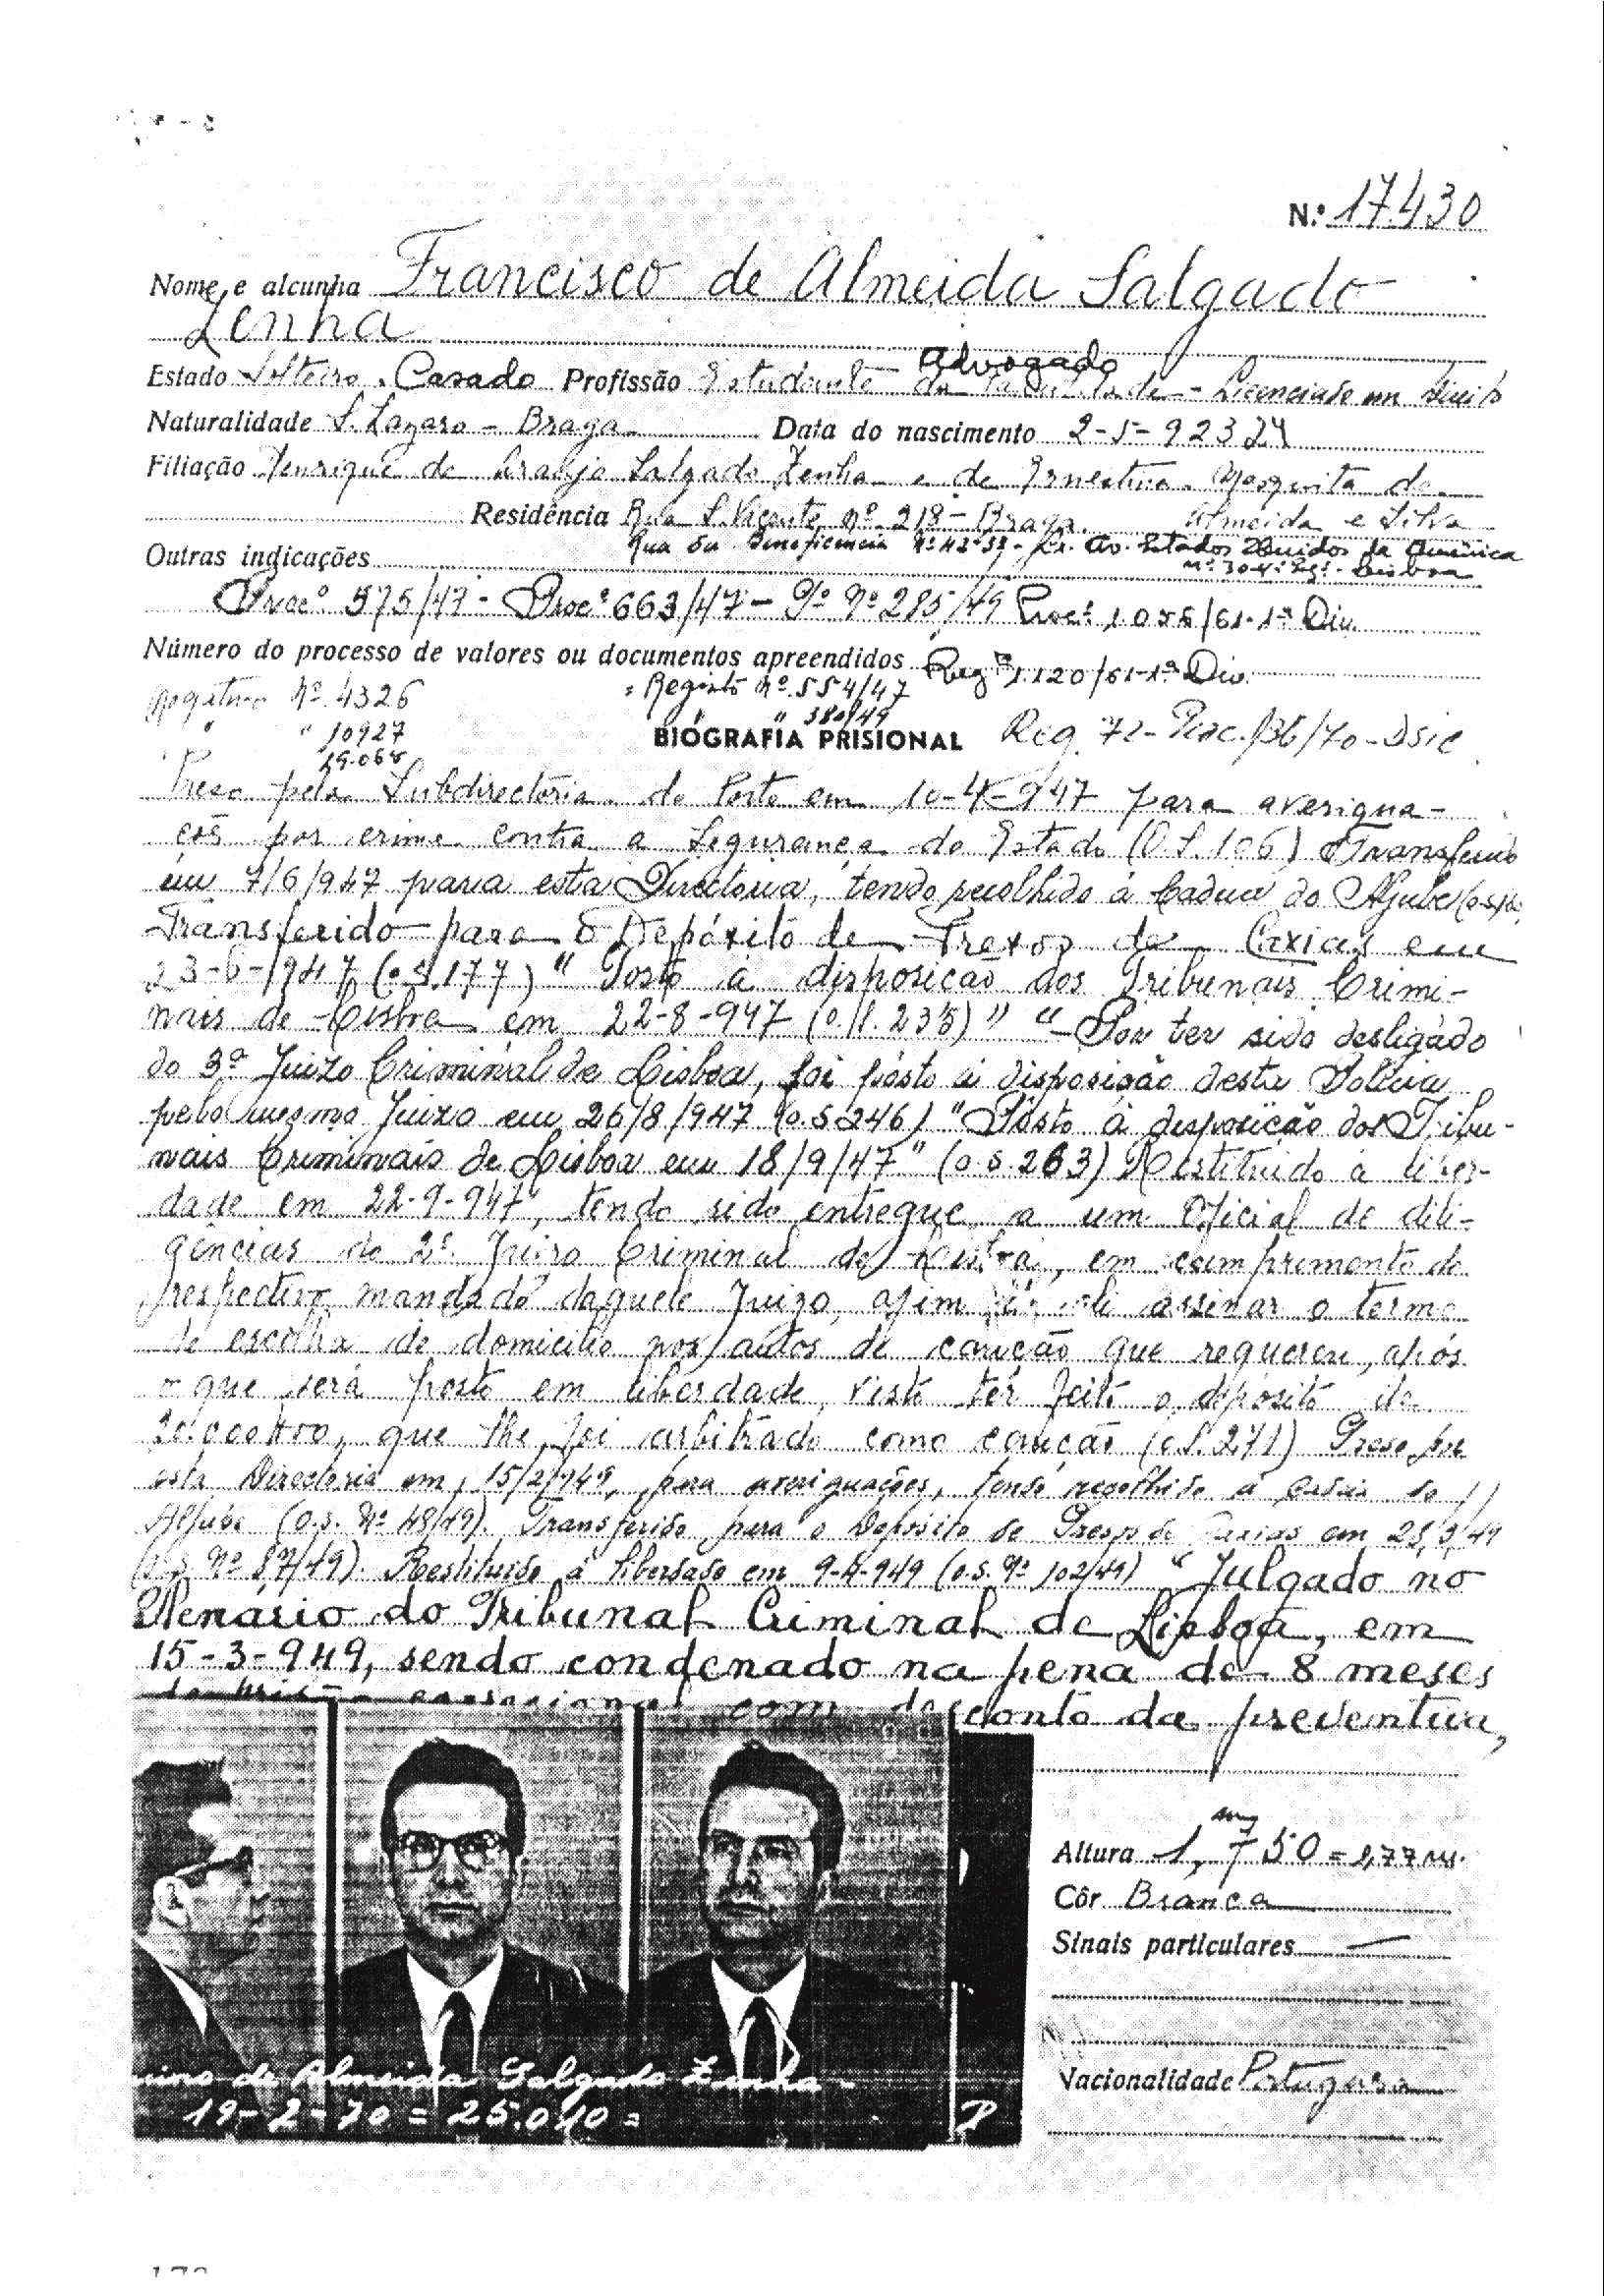 N.º 17430
Nome e alcunha Francisco de Almeida Salgado
Zenha
Estado Solteiro. Casado Profissão Estudante Advogado - Licenciado em Direito
Naturalidade S. Lazaro - Braga Data do nascimento 2-5-923
Filiação Henrique de Araujo Salgado Zenha e de Ernestina Mesquita de
Residência Rua S. Vicente nº 218 - Braga. Almeida e Silva
Rua da Beneficencia Av. Estados Unidos da América
Outras indicações Lisboa
Procº 575/47 - Procº 663/47 - Pº Nº 285/49 Procº 1.056/61-1ª Div.
Número do processo de valores ou documentos apreendidos Regº 1.120/61-1ª Div.
Registro Nº 4326 Registo Nº 554/47
" 10927 " 380/49
BIOGRAFIA PRISIONAL Reg. 72 - Proc. /36/70-DSIC
Preso pela Subdirectoria do Porto em 10-4-947 para averigua-
ções por crime contra a Segurança do Estado (O.S. 106) Transferido
em 7/6/947 para esta Directoria, tendo recolhido à Cadeia do Aljube
Transferido para o Depósito de Presos de Caxias em
23-6-947 (o.s.177) " Posto à disposição dos Tribunais Crimi-
nais de Lisboa em 22-8-947 (o.s. 235) " " Por ter sido desligado
do 3º Juizo Criminal de Lisboa, foi pôsto à disposição desta Policia
pelo mesmo Juizo em 26/8/947 (o.s 246) "Pôsto à disposição dos Tribu-
nais Criminais de Lisboa em 18/9/47" (o.s.263) Restituido à liber-
dade em 22-9-947, tendo sido entregue a um Oficial de dili-
gências do 2º. Juizo Criminal de Lisboa, em cumprimento do
respectivo mandado daquele Juizo, afim de ali assinar o termo
de escolha de domicilio nos autos de caução que requereu, após
o que será posto em liberdade, visto ter feito o depósito de
que lhe foi arbitrado como caução (o.s.271) Preso por
esta Directoria em 15/2/949, para averiguações, tendo recolhido à cadeia do
Aljube (o.s. Nº 48/49). Transferido para o Depósito de Presos de Caxias em 28/3/49
(o.s. Nº 87/49). Restituido à liberdade em 9-4-949 (o.s. Nº 102/49) " Julgado no
Plenario do Tribunal Criminal de Lisboa, em
15-3-949, sendo condenado na pena de 8 meses
de prisão correcional com desconto da preventiva,
Altura 1,750 = 1,77 m.
Côr Branca
Sinais particulares —
Nacionalidade Portuguesa
de Almeida Salgado Zenha -
19-2-70 = 25.010 =